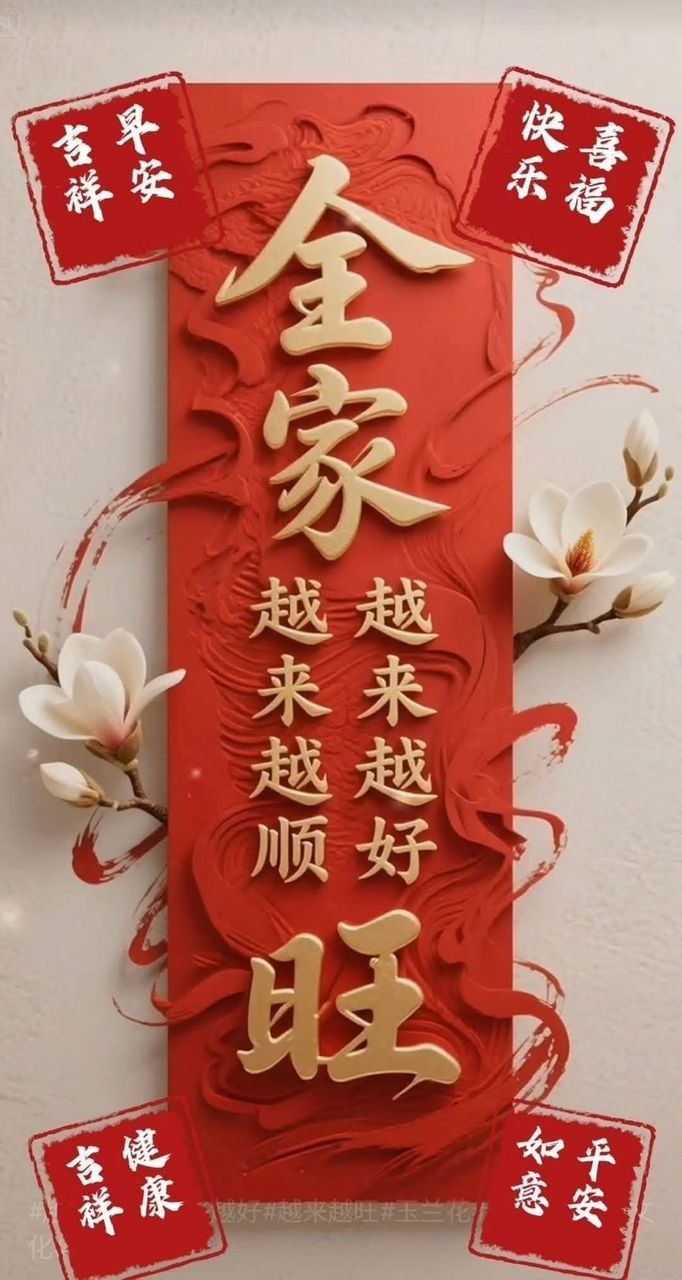 早安
吉祥
喜福
快乐
全家
越来越好
越来越顺
旺
健康
吉祥
平安
如意
越好#越来越旺#玉兰花
化